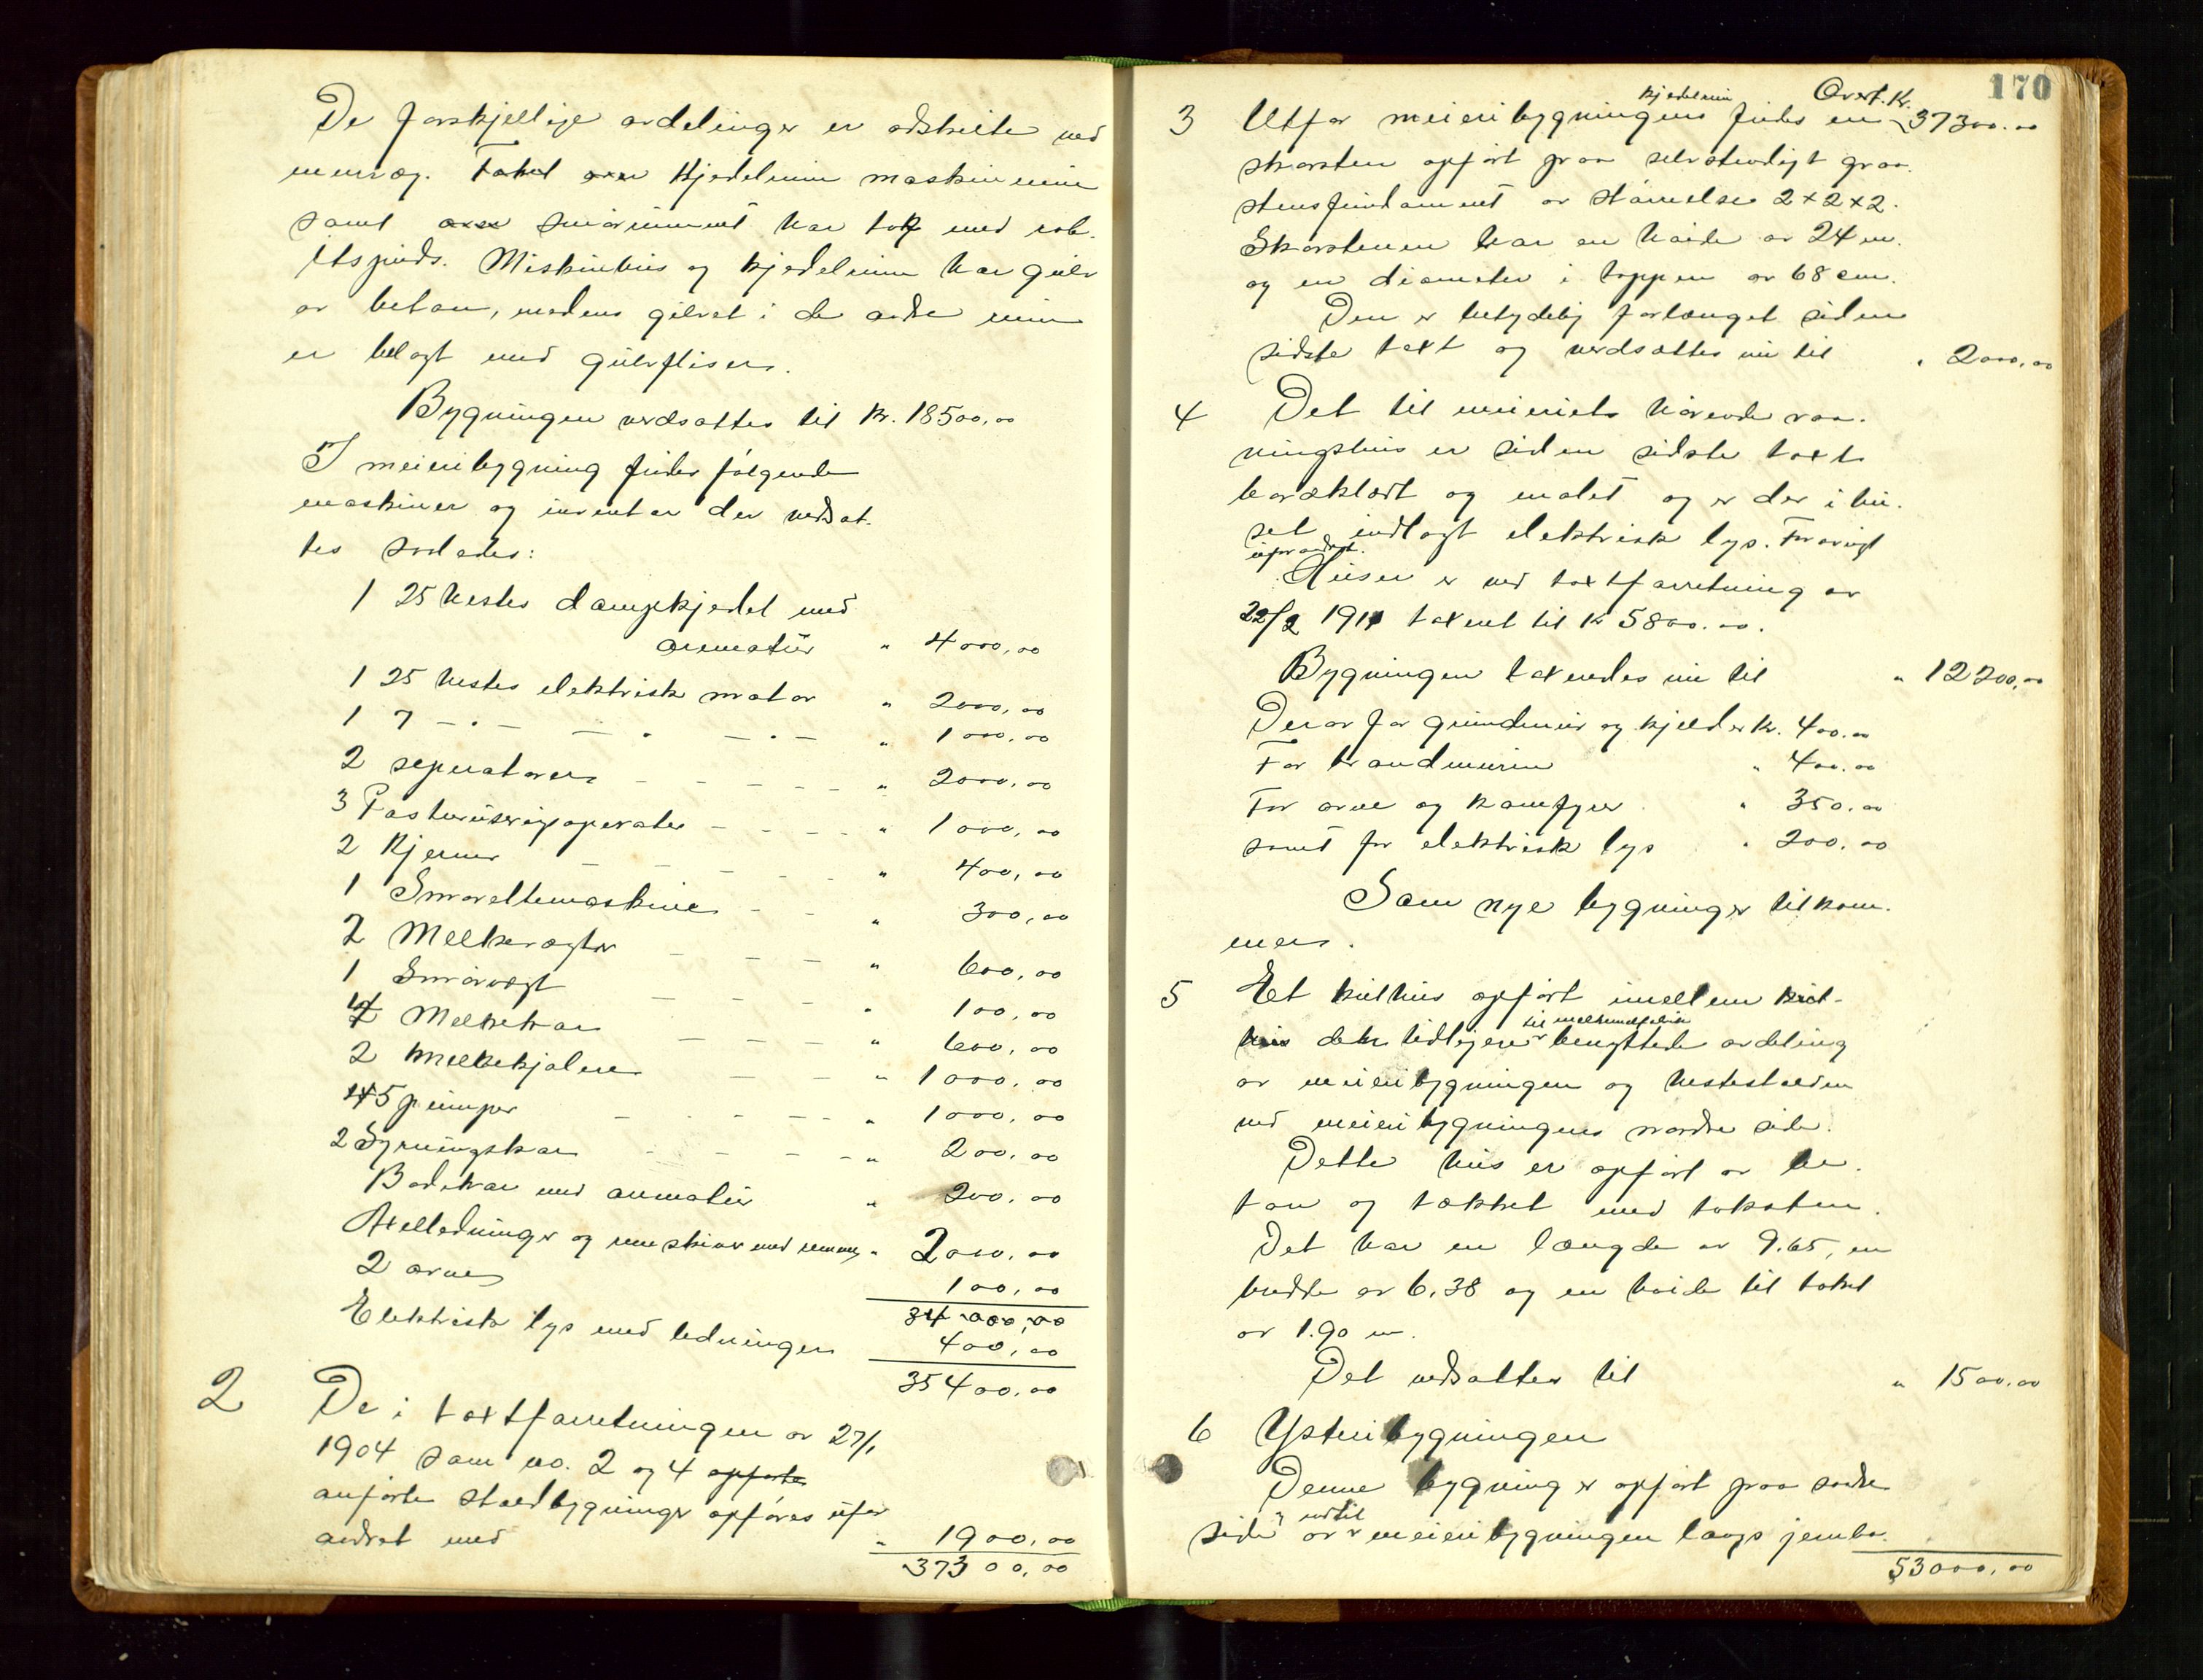 De forskjellige avdelinger er adskilte med
murvæg. Taket over kjedelrum maskinrum
samt over smørrummet har tak med rab-
itspuds. Maskinhus og kjedelrum har gulv
av beton, medens gulvet i de andre rum
er belagt med gulvfliser.
Bygningen værdsattes til kr. 18500,00
I meieribygning findes følgende
maskiner og inventar der værdsat-
tes saaledes:
1 25 hestes dampkjedel med
armatur " 4000,00
1 25 hestes elektrisk motor " 2000,00
1 7 - " - - " - " - " 1000,00
2 seperatorer - - - - " 2000,00
3 Pasteuriseringsaperater - - - - " 1000,00
2 Kjerner - - - - - " 400,00
1 Smøreltemaskine - - " 300,00
2 Melkevægter - - - " 600,00
1 Smørvægt - - - " 100,00
4 Melkekar - - - " 600,00
2 melkekjølere - - " 1000,00
5 pumper - - - - " 1000,00
2 Syrningskar - - - - " 200,00
Badekar med armatur " 200,00
Axelledninger og remskiver med remmer " 2000,00
2 ovner 100,00
34000,00
Elektrisk lys med ledninger 400,00
35400,00
2 De i taxtforretningen av 27/1
1904 som no. 2 og 4 opførte
anførte staldbygninger opføres ufor
andret med " 1900,00
37300,00
170
Overf. kr.
kjedelrum
3 Utfor meieribygningens findes en 37300.00
skorsten opført paa selvstendigt graa-
stensfundament av størrelse 2x2x2.
Skorstenen har en høide av 24 m.
og en diameter i toppen av 68 cm.
Den er betydelig forlænget siden
sidste taxt og værdsættes nu til " 2000,00
4 Det til meieriets hørende vaa-
ningshus er siden sidste taxt
bordklædt og malet og er der i hu-
set indlagt elektrisk lys. Forøvrigt
uforandret.
Huset er ved taxtforretning av
22/2 1911 taxert til kr 5800.00.
Bygningen taxeredes nu til " 12200,00
Derav for grundmur og kjelder kr. 400.00
For brandmuren " 400.00
For ovne og kamfyer " 350.00
samt for elektrisk lys " 200.00
Som nye bygninger tilkom-
mer.
5 Et kulhus opført imellem
til melkemelfabrik
den tidligere benyttede avdeling
av meieribygningen og hestestalden
ved meieribygningens nordre side.
Dette hus er opført av be-
ton og tækket med taksten.
Det har en længde av 9.65, en
bredde av 6.38 og en høide til taket
av 1.90 m.
Det værdsættes til " 1500.00
6 Ysteribygningen
Denne bygning er opført paa søndre
og indtil
side av meieribygningen langs jernba-
53000,00